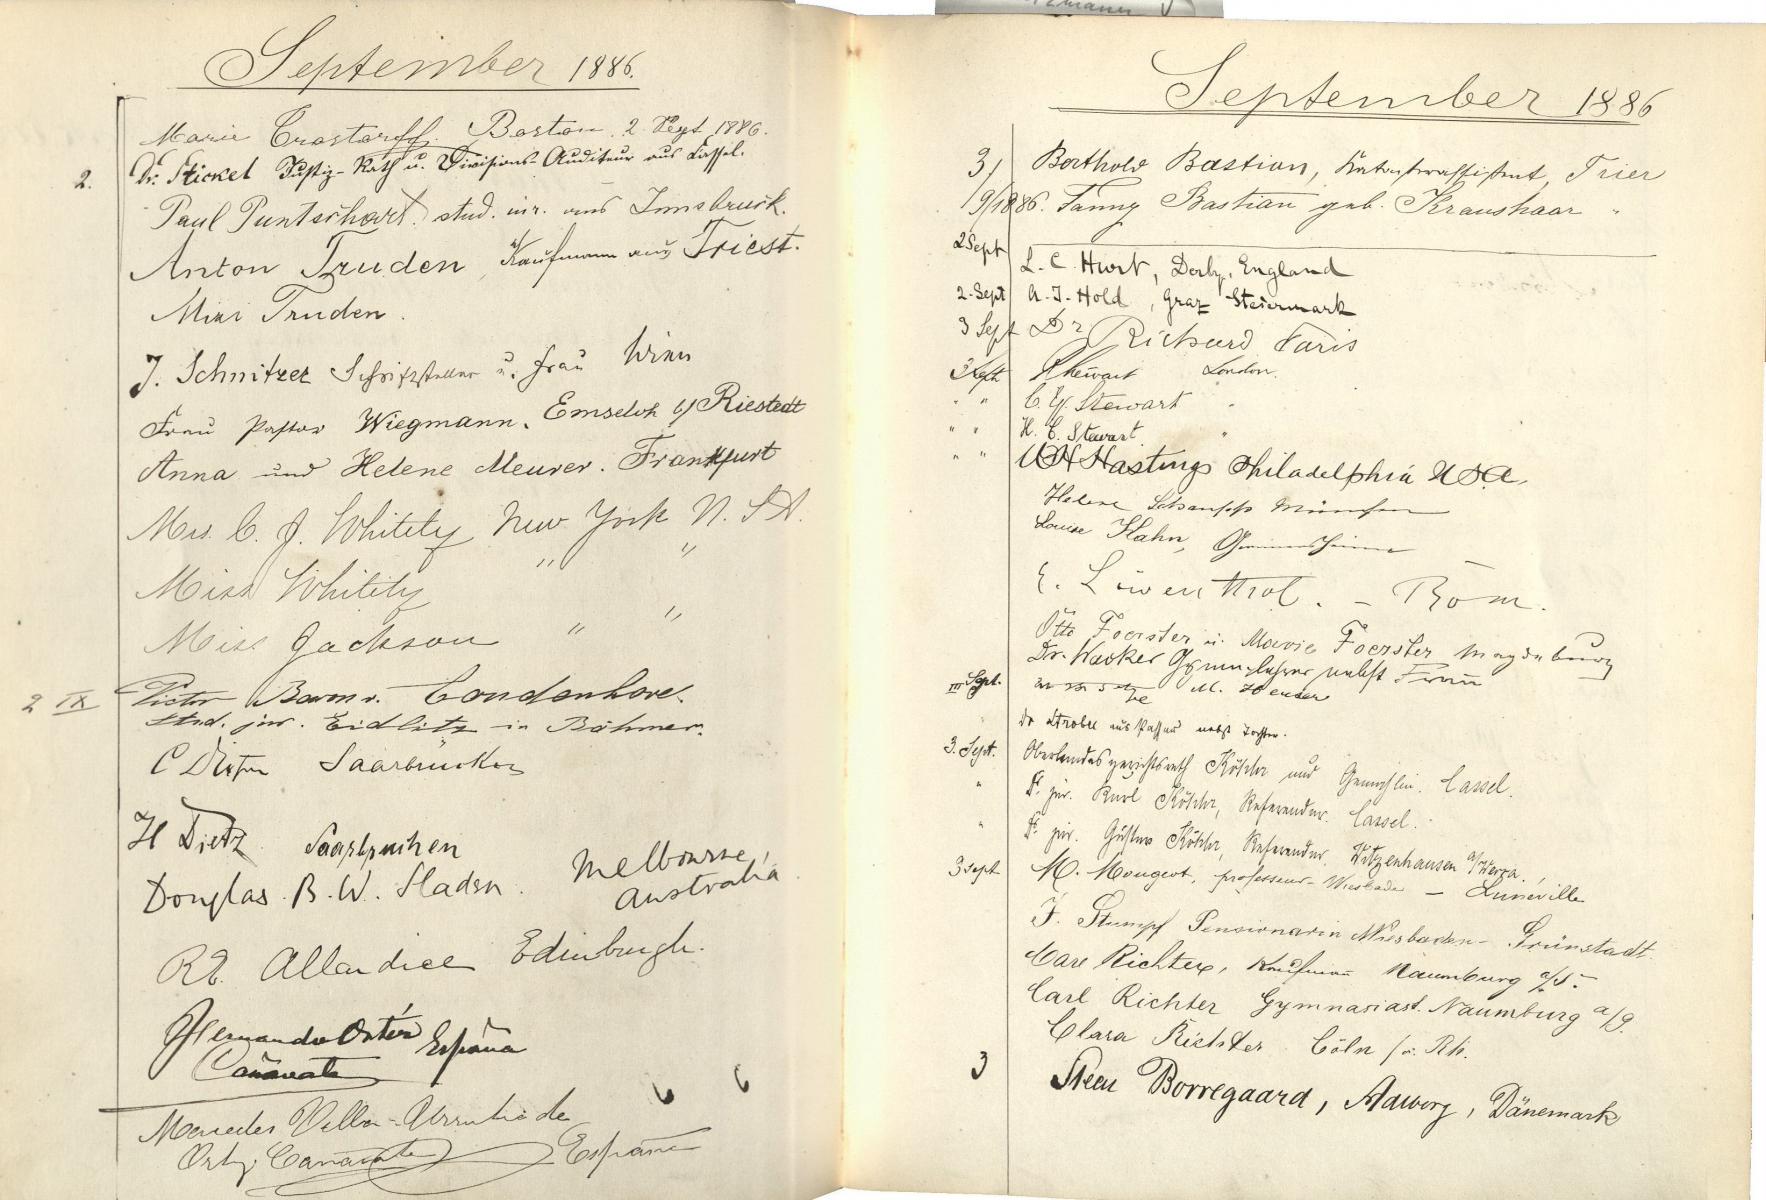 September 1886.
Marie Boston 2. Sept 1886.
2. Dr. Stickel Justiz-Rath u. Divisions-Auditeur aus Cassel.
Paul Puntschart stud. iur. aus Innsbruck.
Anton Truden, Kaufmann aus Triest.
Mizi Truden.
J. Schnitzer Schriftsteller u. Frau Wien
Frau Pastor Wiegmann, Emseloh b/ Riestedt
Anna und Helene Meurer. Frankfurt
Mrs. C. J. Whitely New York N. S A.
Miss Whitely " "
Miss Jackson " "
2 IX Victor Baron v. Coudenhove.
stud. jur. Eidlitz in Böhmen.
C Saarbrücken
H Dietz Saarbrücken
Douglas B. W. Sladen. Melbourne,
Australia
Rt. Allardice Edinburgh.
Hernando España
Cañavate
Mercedes
Cañavate España
September 1886
3/ Berthold Bastian, Trier
9/1886. Fanny Bastian geb. Kraushaar "
2 Sept L. C. Hurt, Derby, England
2. Sept A. J. Hold, Graz Steiermark
3 Sept Dr Richard
3 Sept Stewart London.
" " C. Y. Stewart "
" " H. C. Stewart "
" " W H Hastings Philadelphia U S A.
Helene München
Louise Hahn, Germersheim
E. Löwenthal. – Rom.
Otto Foerster u. Marie Foerster Magdeburg
Dr. Wacker Gymn. lehrer nebst Frau
III Sept. M.
" Dr Strobel aus Passau nebst Tochter.
3. Sept. Oberlandesgerichtsrath Köhler und Gemahlin. Cassel.
" Dr. jur. Karl Köhler, Referendar. Cassel.
" Dr. jur. Gustav Köhler, Referendar. Witzenhausen a/Werra.
3 sept M. Mougeot, professeur – Wiesbaden – Lunéville
F. Stumpf Pensionarin Wiesbaden – Grünstadt.
Richter, Kaufmann Naumburg a/S.
Carl Richter Gymnasiast. Naumburg a/S.
Clara Richter Cöln a. Rh.
3 Steen Borregaard, Aalborg, Dänemark